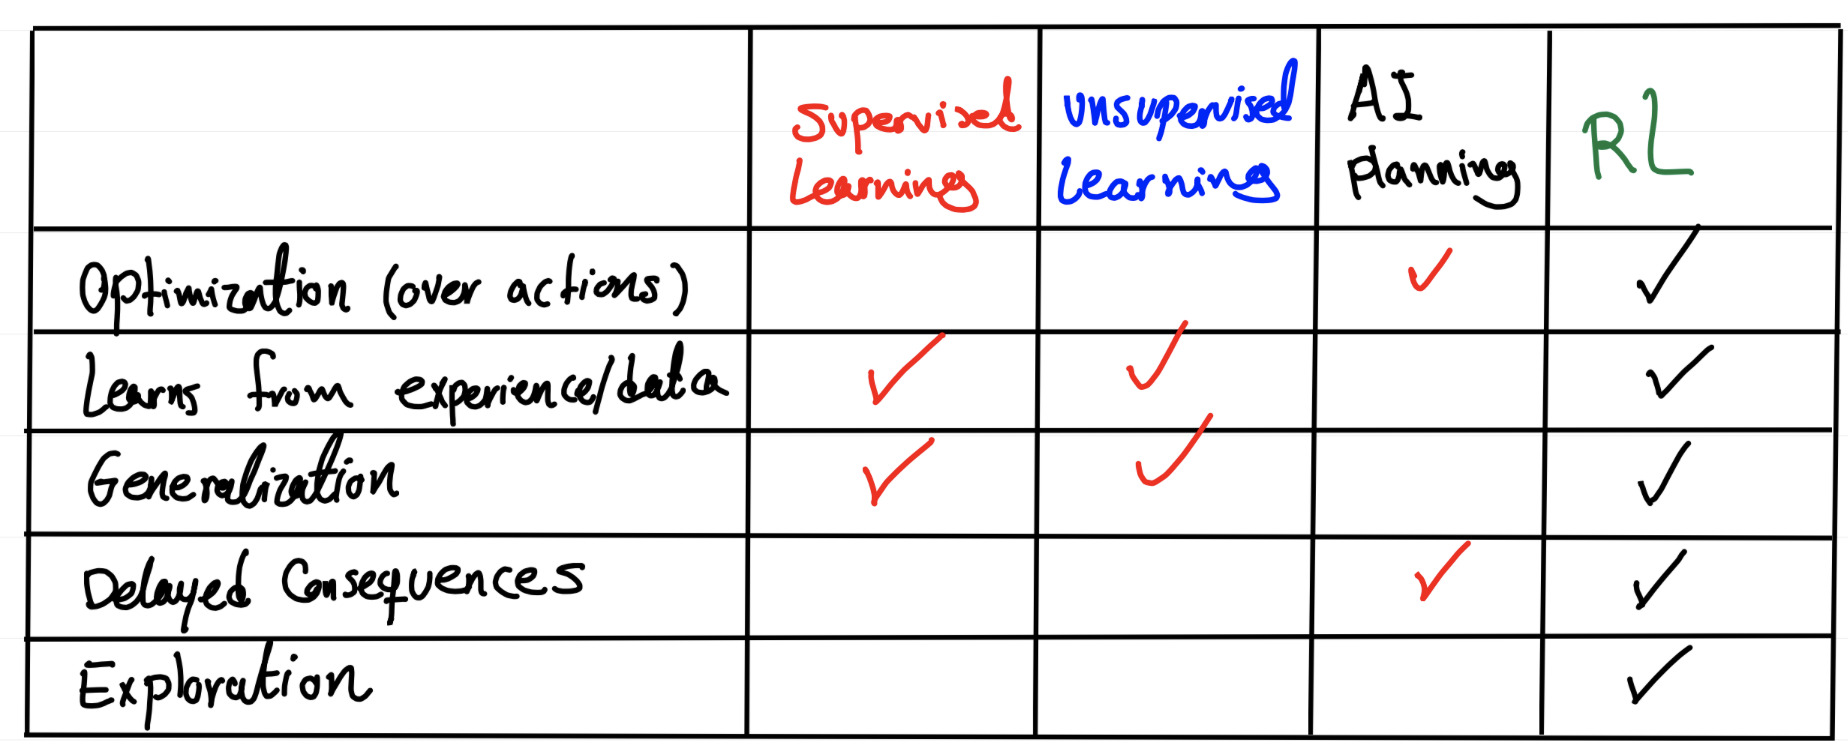 Supervised
Learning
unsupervised
Learning
AI
planning
RL
Optimization (over actions)
✓ ✓
Learns from experience/data
✓ ✓ ✓
Generalization
✓ ✓ ✓
Delayed Consequences
✓ ✓
Exploration
✓